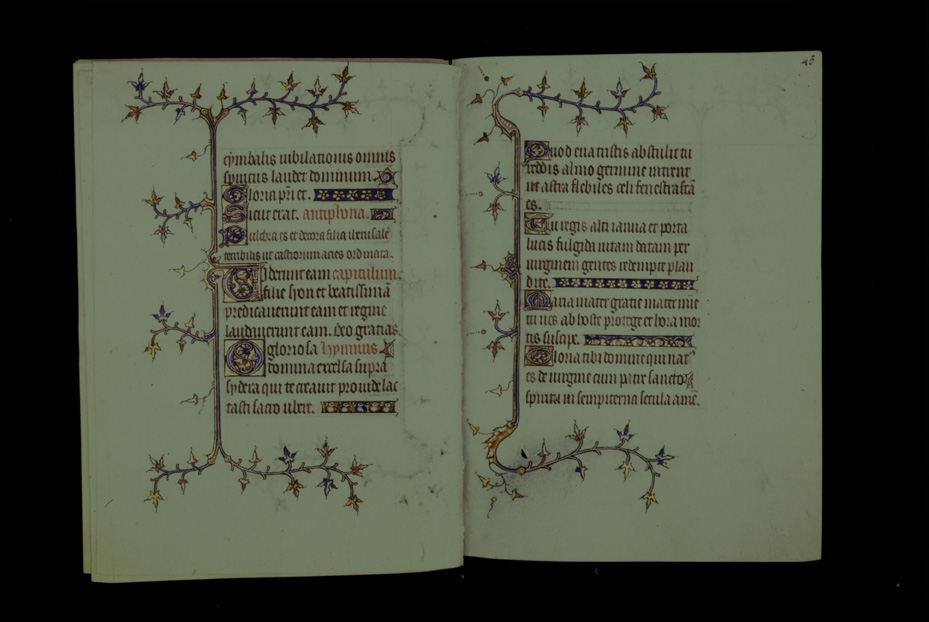 cymbalis iubilationis omnis
spiritus laudet dominum.
Gloria pr̄i et.
Sicut erat. antiphona.
Pulchra es et decora filia iherusalē
terribilis ut castrorum acies ordinata.
Uiderunt eam capitulum.
filie syon et beatissimā
predicauerunt eam et regine
laudauerunt eam. Deo gratias.
O gloriosa hymnus.
domina excelsa supra
sydera qui te creauit prouide lac
tasti sacro ubere.
45
Quod eua tristis abstulit tu
reddis almo germine intrent
ut astra flebiles celi fenestra fcā
es.
Tu regis alti ianua et porta
lucis fulgida uitam datam per
uirginem gentes redempte plau
dite.
Maria mater gratie mater mīe
tu nos ab hoste protege et hora mor
tis suscipe.
Gloria tibi domine qui nat
es de uirgine cum patre sancto
spiritu in sempiterna secula amē.